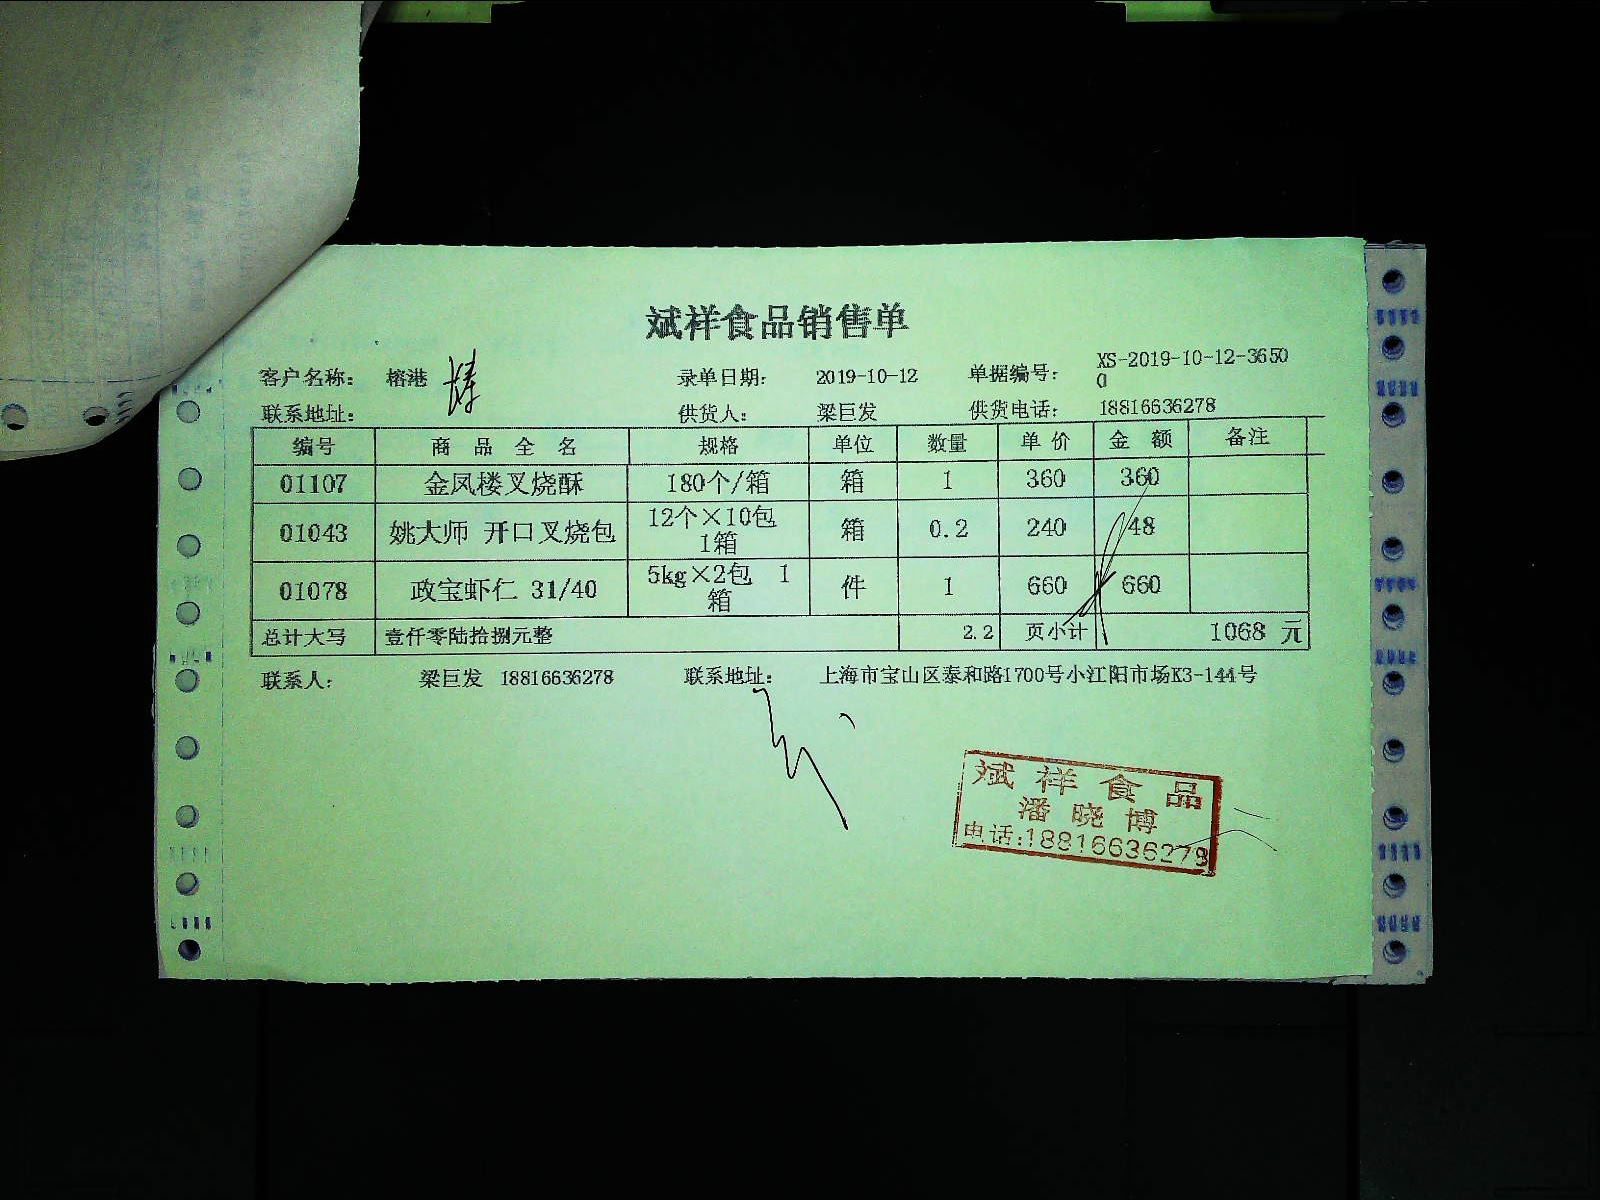 斌祥食品销售单
客户名称: 榕港 录单日期: 2019-10-12 单据编号: XS-2019-10-12-3650
0
联系地址: 供货人: 梁巨发 供货电话: 18816636278
编号 商品全名 规格 单位 数量 单价 金额 备注
01107 金凤楼叉烧酥 180个/箱 箱 1 360 360
01043 姚大师 开口叉烧包 12个×10包 1箱 箱 0.2 240 48
01078 政宝虾仁 31/40 5kg×2包 1箱 件 1 660 660
总计大写 壹仟零陆拾捌元整 2.2 页小计 1068 元
联系人: 梁巨发 18816636278 联系地址: 上海市宝山区泰和路1700号小江阳市场K3-144号
斌祥食品
潘晓博
电话:18816636278